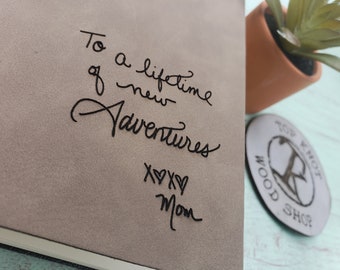 To a lifetime
of new
Adventures
XOXO
Mom
TOP KNOT
WOOD SHOP